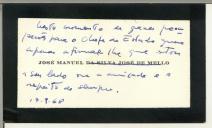 Neste momento de graves preocupa
ções para o Chefe do Estado quero
apenas afirmar-lhe que estou
JOSÉ MANUEL DA SILVA JOSÉ DE MELLO
a seu lado com a amizade e o
respeito de sempre.